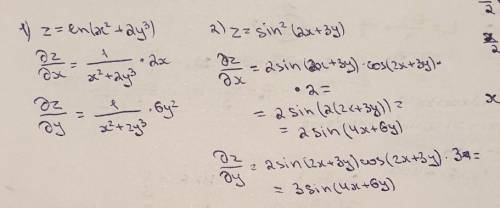 1) z = ln(x² + 2y³)
∂z/∂x = 1/(x² + 2y³) · 2x
∂z/∂y = 1/(x² + 2y³) · 6y²
2) z = sin² (2x + 3y)
∂z/∂x = 2sin(2x + 3y) · cos(2x + 3y) ·
· 2 =
= 2 sin(2(2x + 3y)) =
= 2 sin(4x + 6y)
∂z/∂y = 2sin(2x + 3y) cos(2x + 3y) · 3 =
= 3 sin(4x + 6y)
2
2
x